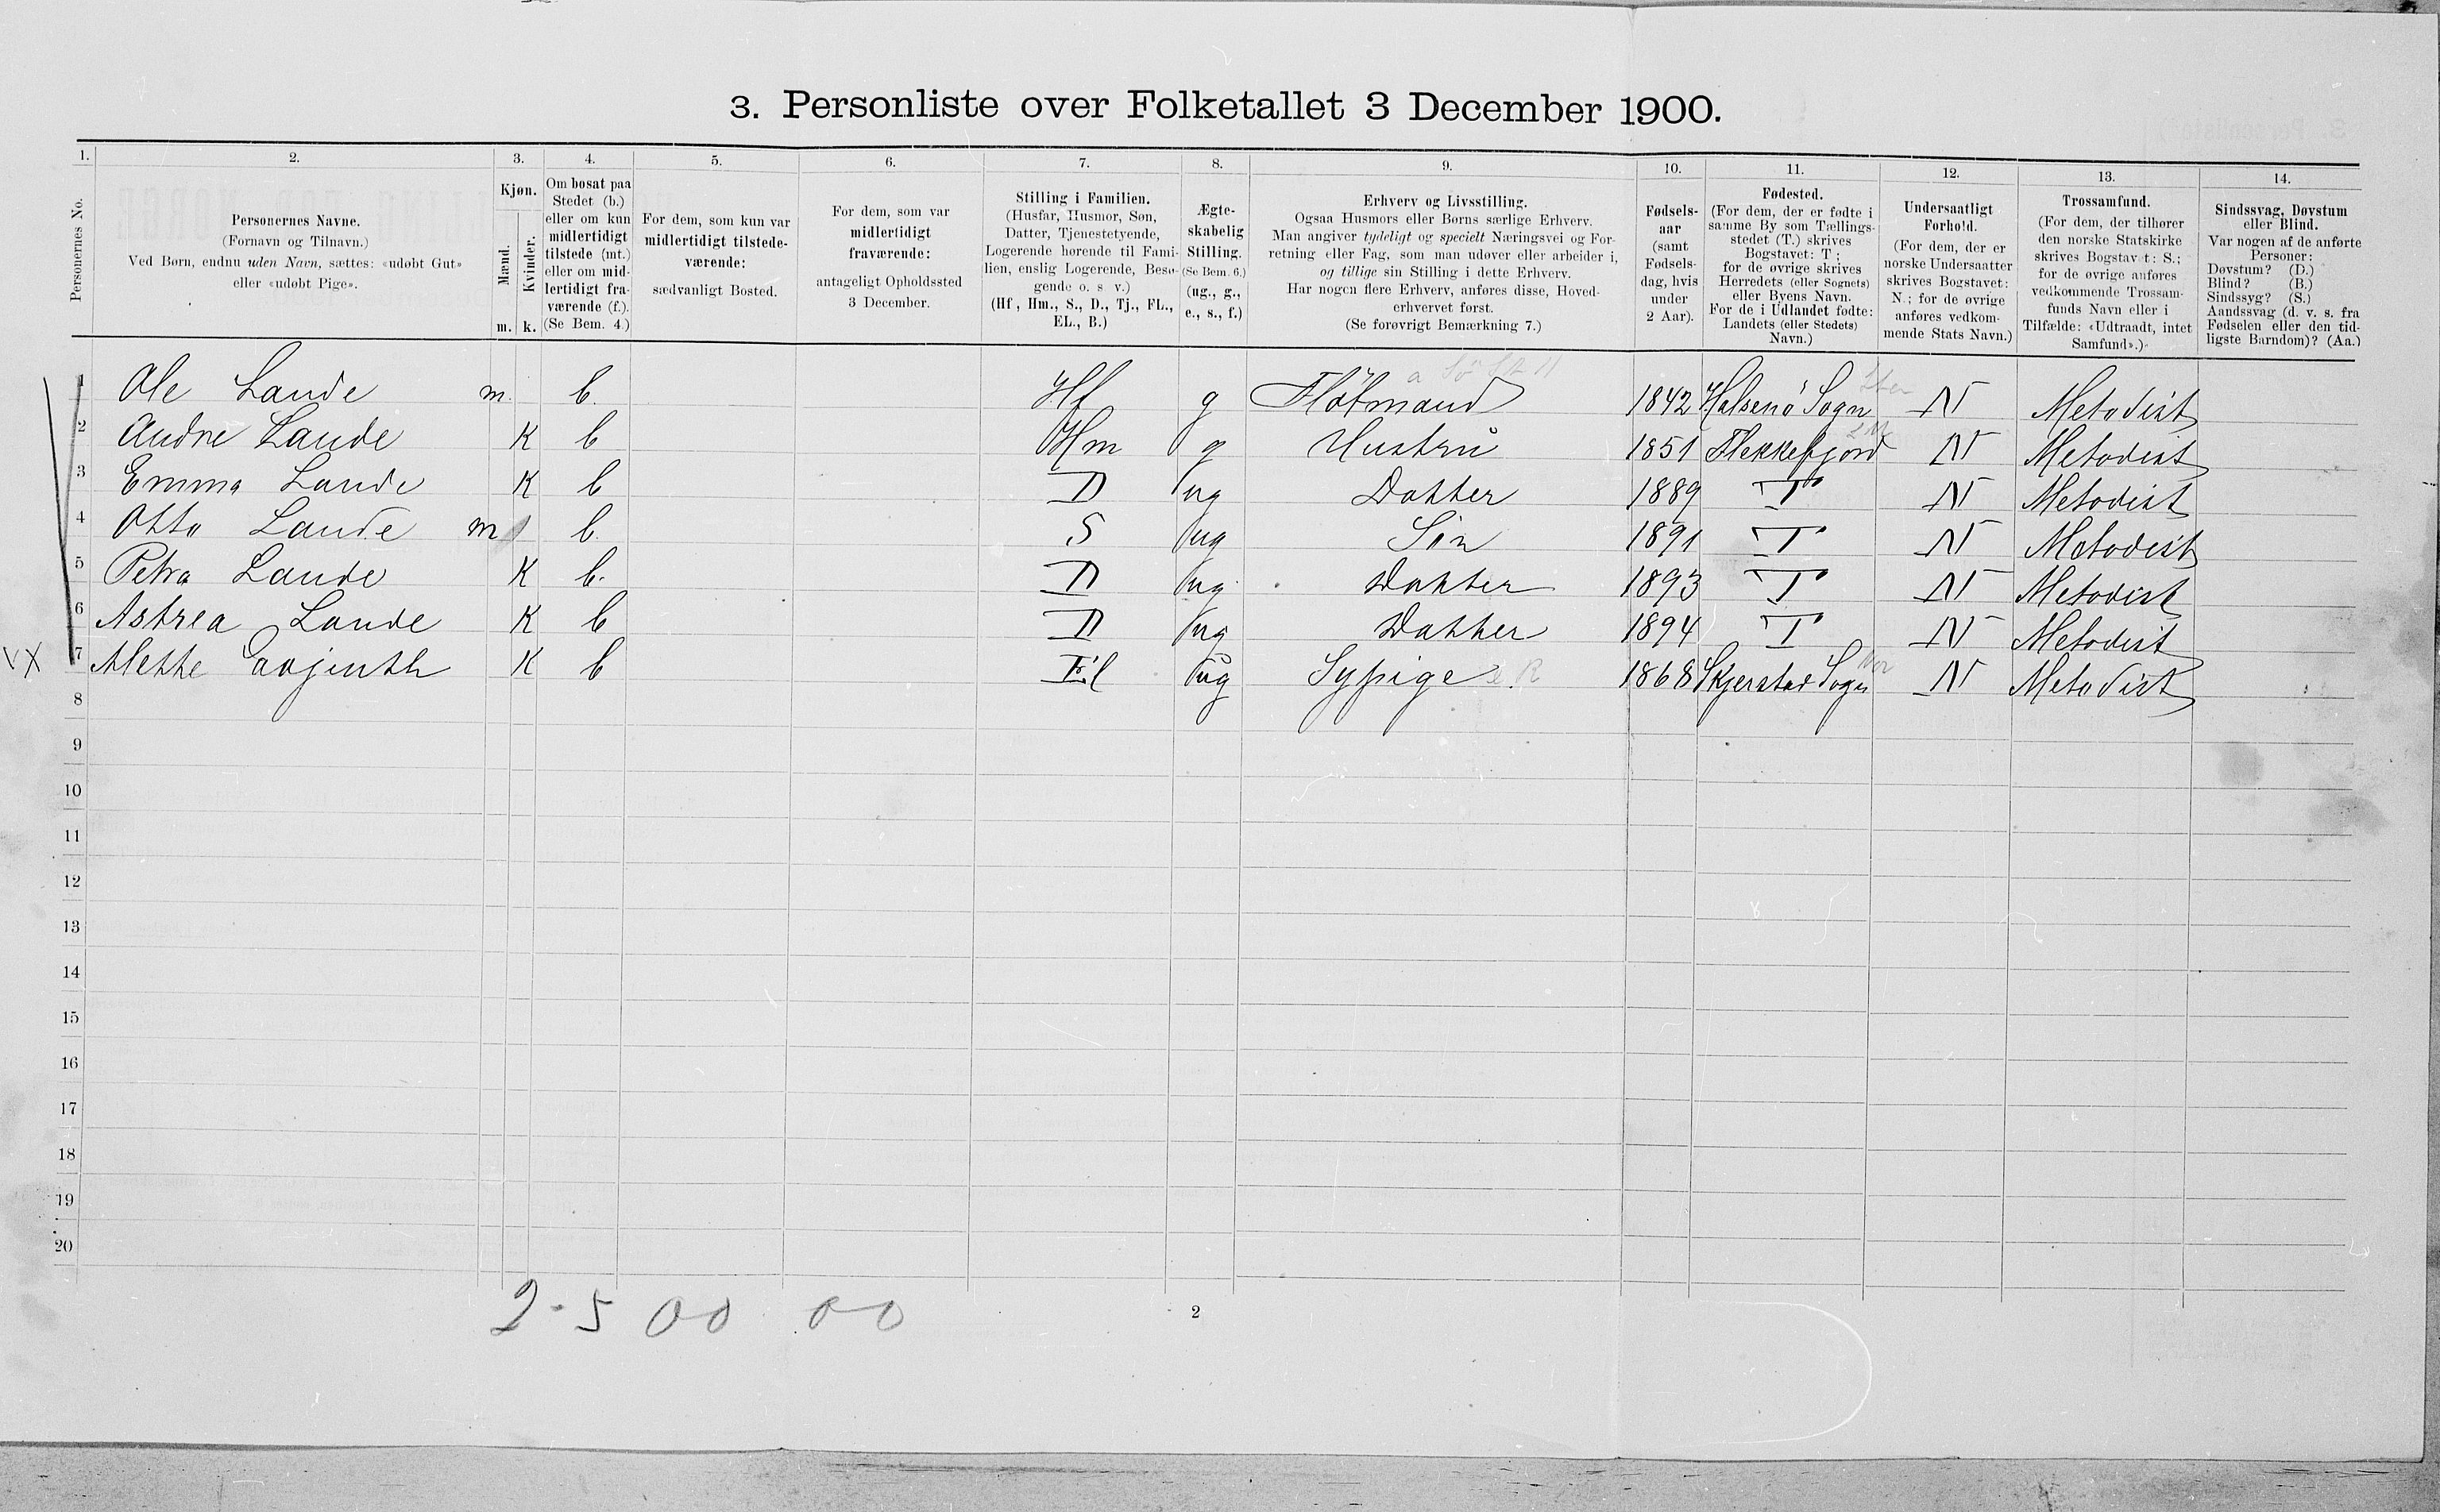 3. Personliste over Folketallet 3 December 1900.
1. 2. 3. 4. 5. 6. 7. 8. 9. 10. 11. 12. 13. 14.
Personernes No.
Personernes Navne.
(Fornavn og Tilnavn.)
Ved Børn, endnu uden Navn, sættes: «udøbt Gut»
eller «udøbt Pige».
Kjøn.
Mænd.
Kvinder.
m. k.
Om bosat paa
Stedet (b.)
eller om kun
midlertidigt
tilstede (mt.)
eller om mid-
lertidigt fra-
værende (f.).
(Se Bem. 4.)
For dem, som kun var
midlertidigt tilstede-
værende:
sædvanligt Bosted.
For dem, som var
midlertidigt
fraværende:
antageligt Opholdssted
3 December.
Stilling i Familien.
(Husfar, Husmor, Søn,
Datter, Tjenestetyende,
Logerende hørende til Fami-
lien, enslig Logerende, Besø-
gende o. s v.)
(Hf, Hm., S., D., Tj., FL.,
EL., B.)
Ægte-
skabelig
Stilling.
(Se Bem. 6.)
(ug., g.,
e., s., f.)
Erhverv og Livsstilling.
Ogsaa Husmors eller Børns særlige Erhverv.
Man angiver tydeligt og specielt Næringsvei og For-
retning eller Fag, som man udøver eller arbeider i,
og tillige sin Stilling i dette Erhverv.
Har nogen flere Erhverv, anføres disse, Hoved-
erhvervet først.
(Se forøvrigt Bemærkning 7.)
Fødsels-
aar
(samt
Fødsels-
dag, hvis
under
2 Aar).
Fødested.
(For dem, der er fødte i
samme By som Tællings-
stedet (T.) skrives
Bogstavet: T;
for de øvrige skrives
Herredets (eller Sognets)
eller Byens Navn.
For de i Udlandet fødte:
Landets (eller Stedets)
Navn.)
Undersaatligt
Forhold.
(For dem, der er
norske Undersaatter
skrives Bogstavet:
N.; for de øvrige
anføres vedkom-
mende Stats Navn.)
Trossamfund.
(For dem, der tilhører
den norske Statskirke
skrives Bogstavet: S.;
for de øvrige anføres
vedkommende Trossam-
funds Navn eller i
Tilfælde: «Udtraadt, intet
Samfund».)
Sindssvag, Døvstum
eller Blind.
Var nogen af de anførte
Personer:
Døvstum? (D.)
Blind? (B.)
Sindssyg? (S.)
Aandssvag (d. v. s. fra
Fødselen eller den tid-
ligste Barndom)? (Aa.)
1 Ole Lande m. b. Hf g Fløtmand 1842 Halsenø Sogn N Metodist
2 Andre Lande K b Hm g Hustru 1851 Flekkefjord N Metodist
3 Emma Lande K b D ug Datter 1889 T N Metodist
4 Otto Lande m b. S ug Søn 1891 T N Metodist
5 Petra Lande K b. D ug Datter 1893 T N Metodist
6 Astrea Lande K b D ug Datter 1894 T N Metodist
VX 7 Mette K b El ug Sypige 1868 Skjerstad Sogn N Metodist
8
9
10
11
12
13
14
15
16
17
18
19
20
2-5 00 00
2